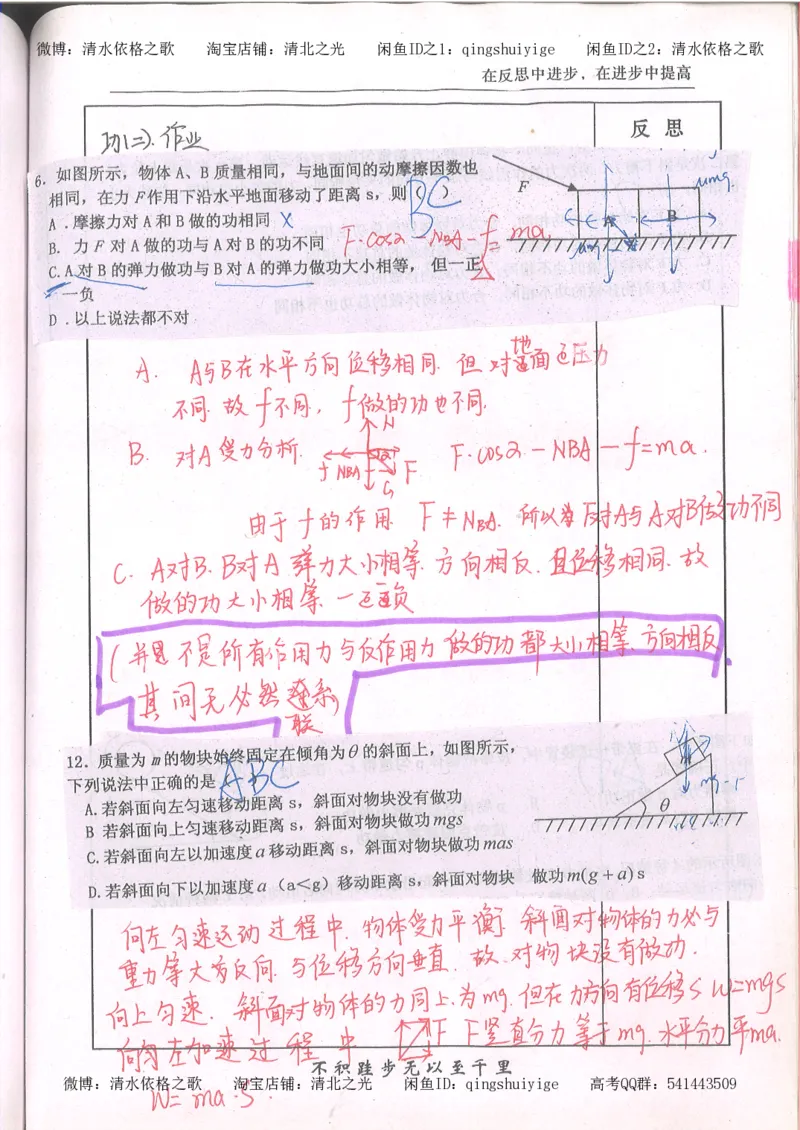 微博：清水依格之歌 淘宝店铺：清北之光 闲鱼ID之1：qingshuiyige 闲鱼ID之2：清水依格之歌
在反思中进步，在进步中提高
功(二).作业
反 思
6. 如图所示，物体 A、B 质量相同，与地面间的动摩擦因数也
相同，在力 F 作用下沿水平地面移动了距离 s，则（ BC ）
A .摩擦力对 A 和 B 做的功相同 X
B. 力 F 对 A 做的功与 A 对 B 的功不同
F·cosα - NBA - f = ma
C.A 对 B 的弹力做功与 B 对 A 的弹力做功大小相等， 但一正
一负
D .以上说法都不对
F
A
B
μmg
A. A与B在水平方向位移相同. 但对地面压力
不同. 故 f 不同, f 做的功也不同.
B. 对A受力分析.
N
f NBA F
G
F·cosα - NBA - f = ma.
由于 f 的作用. F ≠ NBA. 所以 F对A与A对B做功不同
C. A对B. B对A 弹力大小相等. 方向相反. 且位移相同. 故
做的功大小相等. 一正一负
(并且 不是所有作用力与反作用力 做的功都大小相等、方向相反
其间无必然联系)
12. 质量为 m 的物块始终固定在倾角为 θ 的斜面上，如图所示，
下列说法中正确的是 ABC
A.若斜面向左匀速移动距离 s，斜面对物块没有做功
B 若斜面向上匀速移动距离 s，斜面对物块做功 mgs
C.若斜面向左以加速度 a 移动距离 s，斜面对物块做功 mas
D.若斜面向下以加速度 a （a＜g）移动距离 s，斜面对物块 做功 m(g + a) s
θ
向左匀速运动 过程中. 物体受力平衡. 斜面对物体的力必与
重力等大方反向. 与位移方向垂直. 故. 对物块没有做功.
向上匀速. 斜面对物体的力同上.为 mg. 但在力方向有位移s W=mgs
向左加速过程中 F F竖直分力等于mg. 水平分力平ma.
W= ma·s.
不积跬步无以至千里
微博：清水依格之歌 淘宝店铺：清北之光 闲鱼ID：qingshuiyige 高考QQ群：541443509